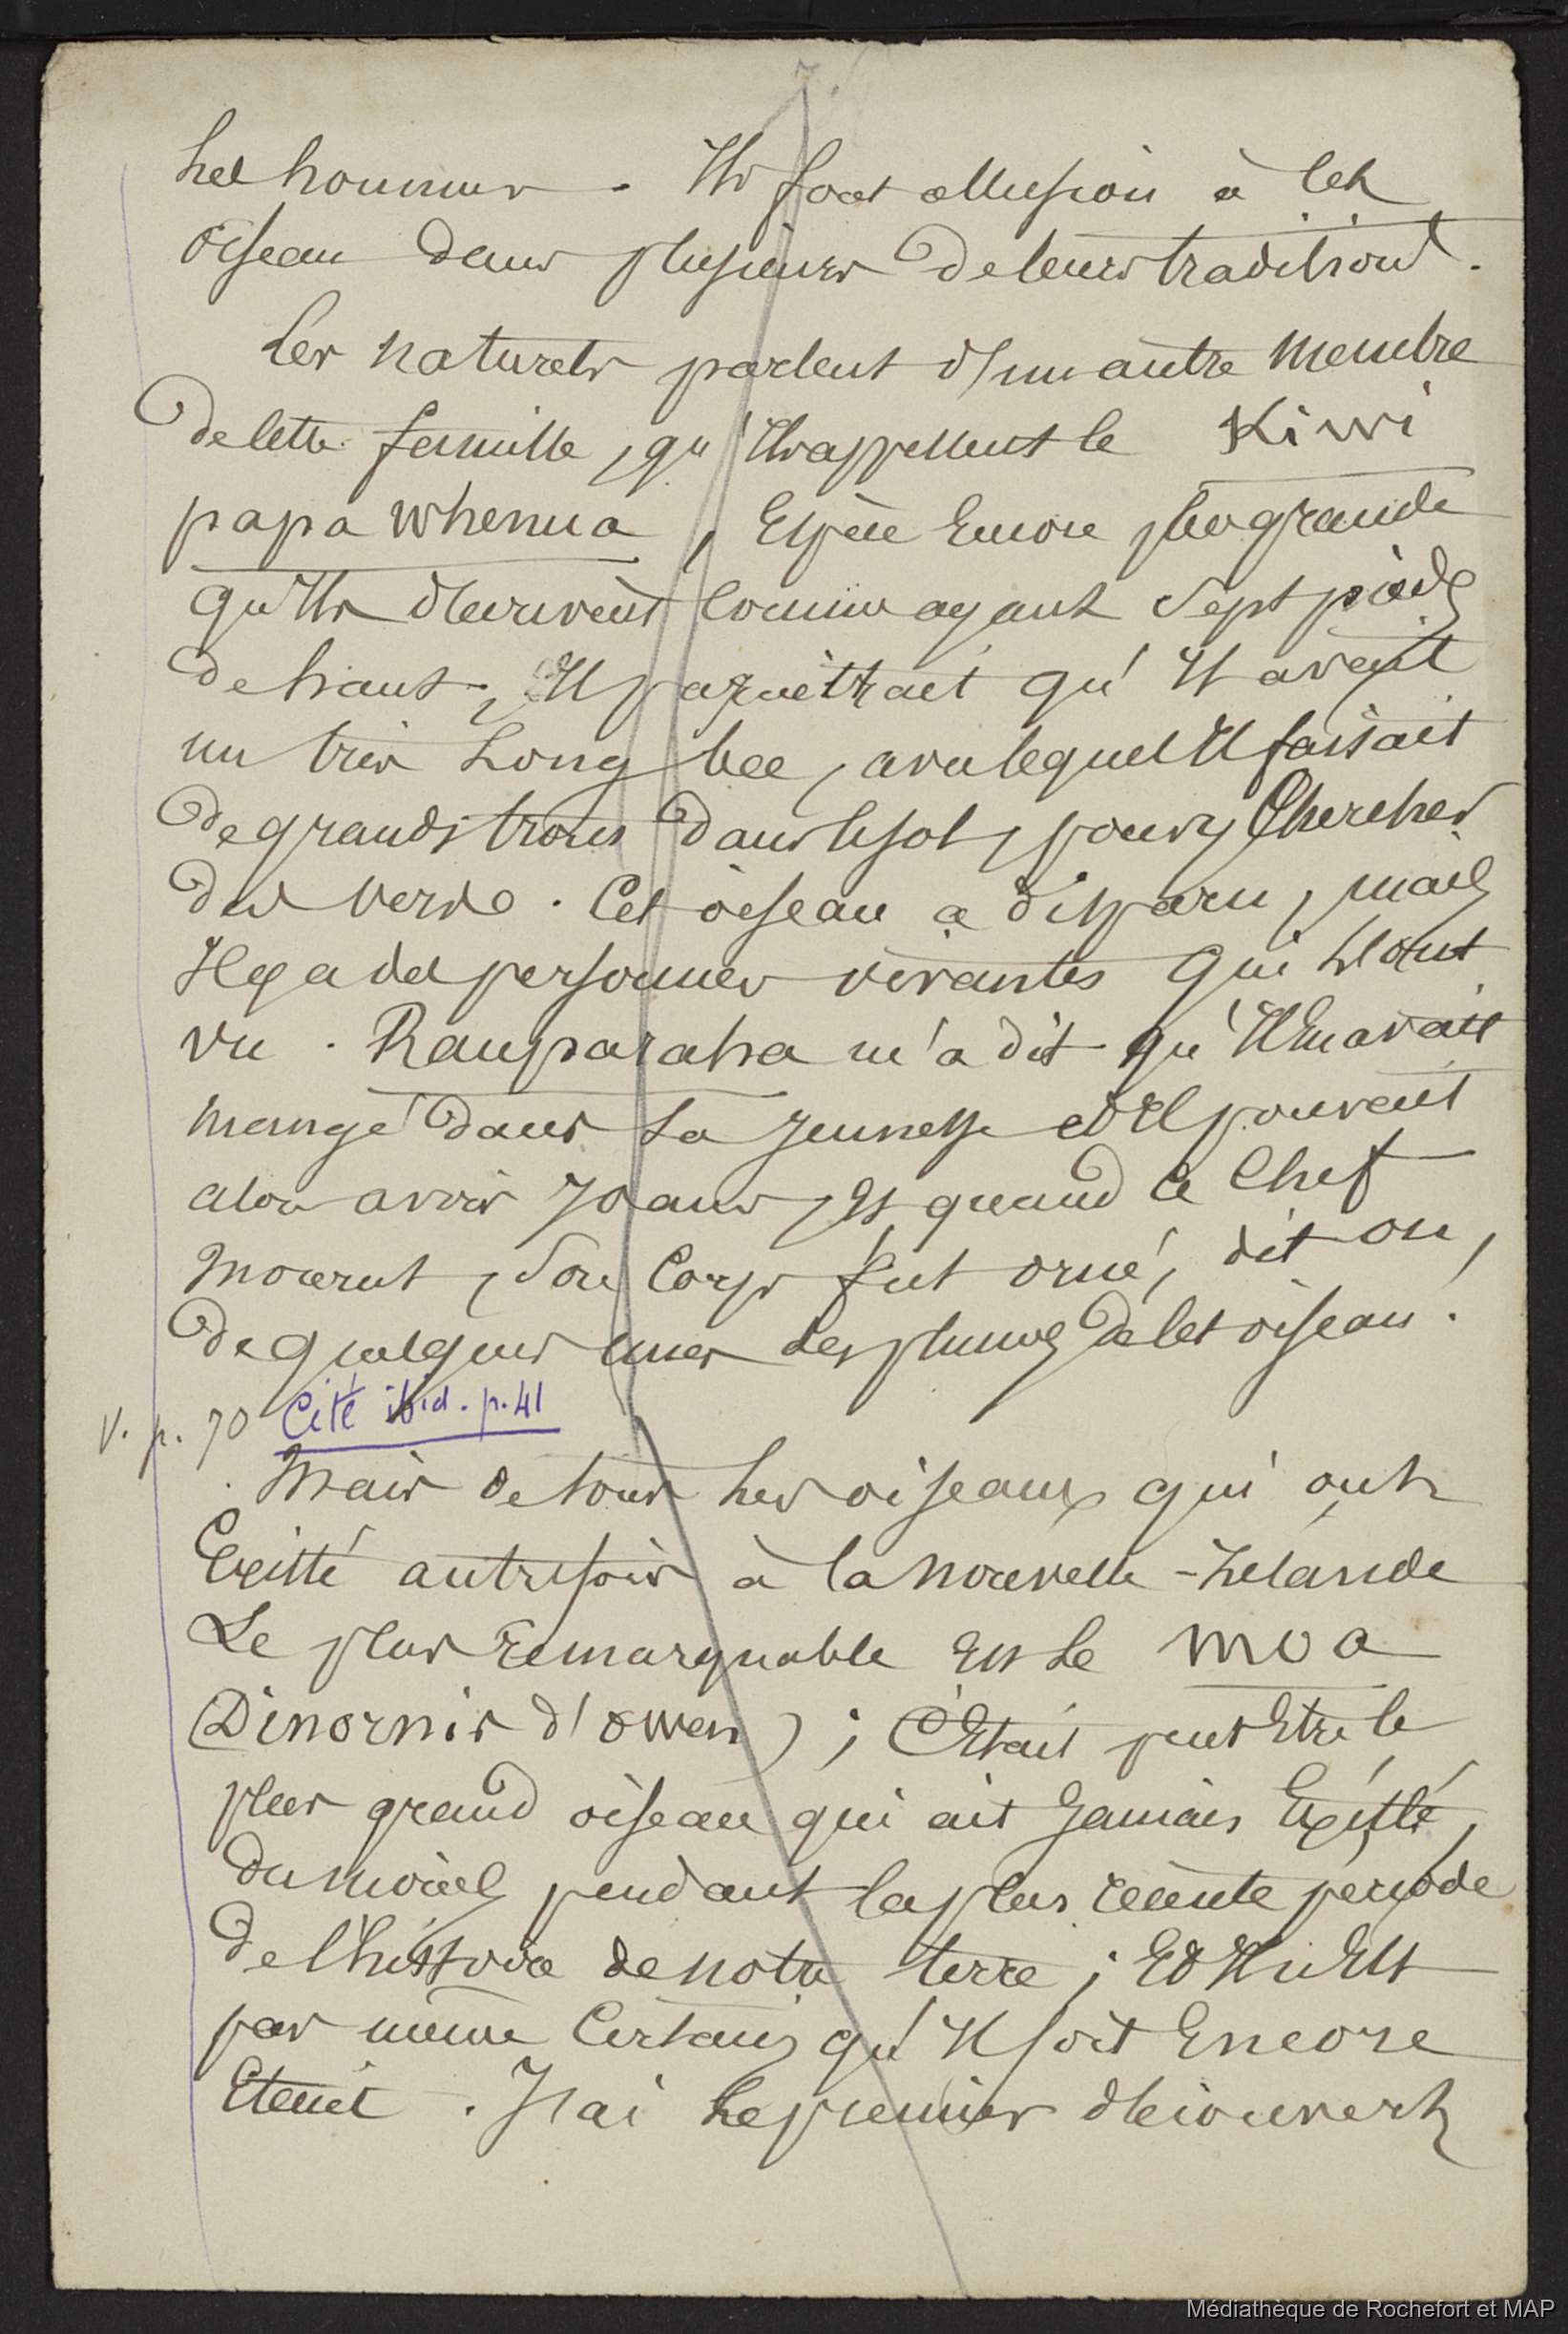 7.
les hommes. Ils font allusion à cet
oiseau dans plusieurs de leurs traditions.
Les naturels parlent d'un autre membre
de cette famille, qu'ils appellent le Kiwi
papa whenua, Espèce Encore plus grande
qu'ils décrivent comme ayant sept pieds
de haut, Il paraîtrait qu'il avait
un très long bec, avec lequel Il faisait
de grands trous dans le sol, pour y Chercher
des vers. Cet oiseau a disparu, mais
Il y a des personnes vivantes qui l'ont
vu. Rauparaha m'a dit qu'Il En avait
mangé dans sa jeunesse et Il pouvait
alors avoir 70 ans, Et quand ce Chef
mourut, Son Corps fut orné, dit on,
de quelques unes des plumes de cet oiseau.
V. p. 70 Cité ibid. p. 41
Mais de tous les oiseaux qui ont
Existé autrefois à la Nouvelle-Zélande
Le plus remarquable Est le moa
(Dinornis d'Owen); C'Etait peut Etre le
plus grand oiseau qui ait Jamais Existé,
du moins pendant la plus récente période
de l'histoire de notre terre; Et Il n'Est
pas même Certain qu'Il soit Encore
Eteint. J'ai le premier découvert
Médiathèque de Rochefort et MAP